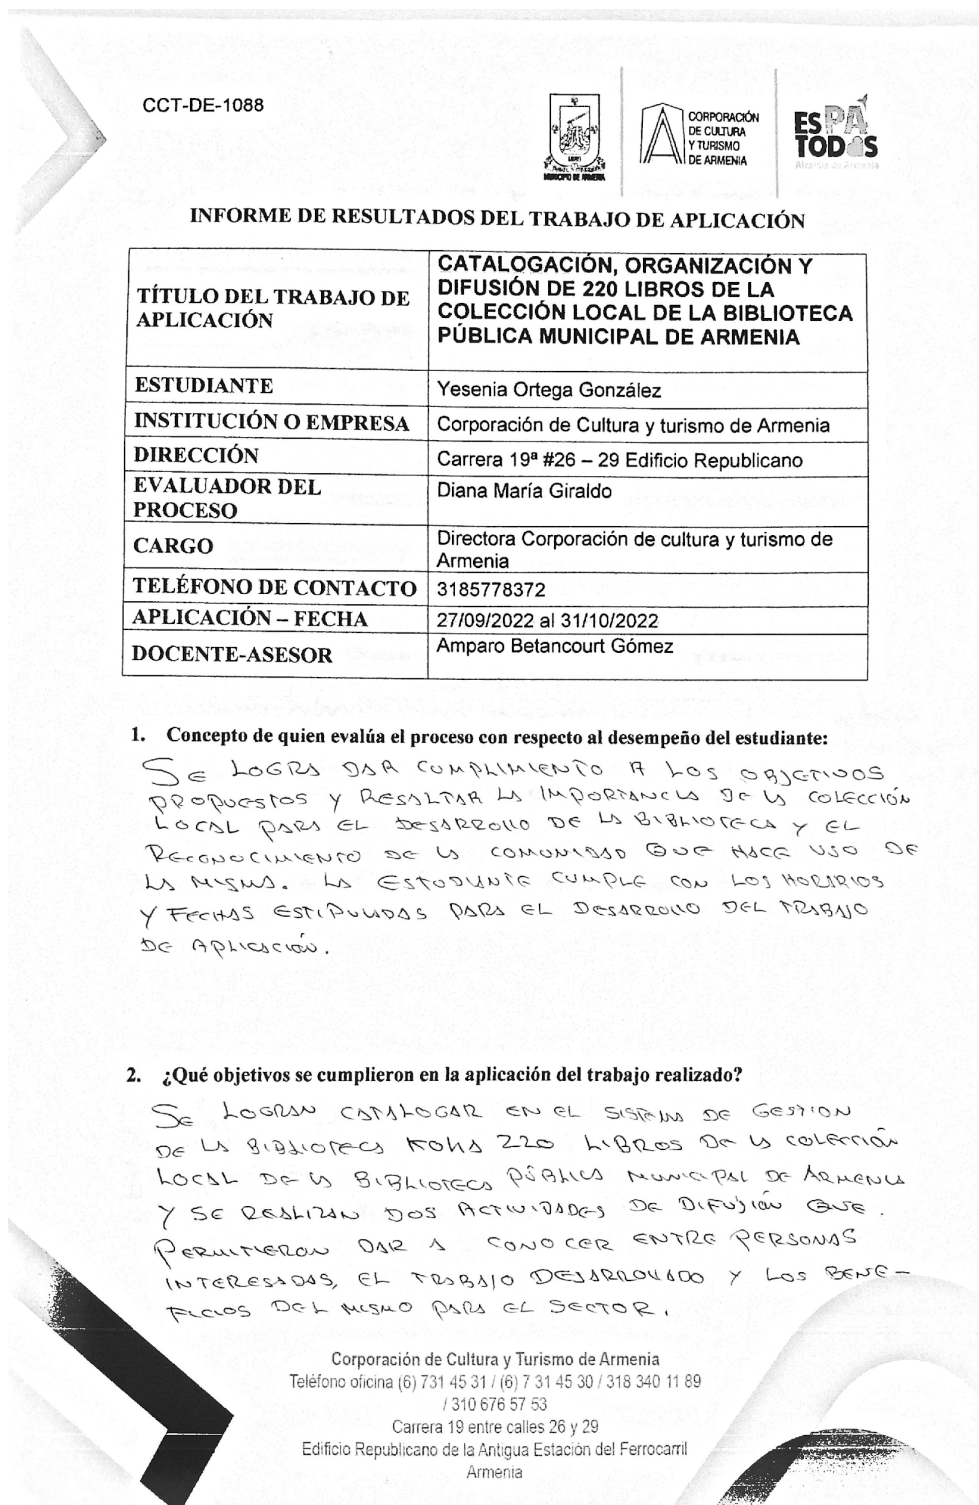 CCT-DE-1088
MUNICIPIO DE ARMENIA
CORPORACIÓN
DE CULTURA
Y TURISMO
DE ARMENIA
ES PA
TODOS
Alcaldía de Armenia
INFORME DE RESULTADOS DEL TRABAJO DE APLICACIÓN
TÍTULO DEL TRABAJO DE
APLICACIÓN
CATALOGACIÓN, ORGANIZACIÓN Y
DIFUSIÓN DE 220 LIBROS DE LA
COLECCIÓN LOCAL DE LA BIBLIOTECA
PÚBLICA MUNICIPAL DE ARMENIA
ESTUDIANTE
Yesenia Ortega González
INSTITUCIÓN O EMPRESA
Corporación de Cultura y turismo de Armenia
DIRECCIÓN
Carrera 19ª #26 – 29 Edificio Republicano
EVALUADOR DEL
PROCESO
Diana María Giraldo
CARGO
Directora Corporación de cultura y turismo de
Armenia
TELÉFONO DE CONTACTO
3185778372
APLICACIÓN – FECHA
27/09/2022 al 31/10/2022
DOCENTE-ASESOR
Amparo Betancourt Gómez
1. Concepto de quien evalúa el proceso con respecto al desempeño del estudiante:
SE LOGRA DAR CUMPLIMIENTO A LOS OBJETIVOS
PROPUESTOS Y RESALTAR LA IMPORTANCIA DE LA COLECCIÓN
LOCAL PARA EL DESARROLLO DE LA BIBLIOTECA Y EL
RECONOCIMIENTO DE LA COMUNIDAD QUE HACE USO DE
LA MISMA. LA ESTUDIANTE CUMPLE CON LOS HORARIOS
Y FECHAS ESTIPULADAS PARA EL DESARROLLO DEL TRABAJO
DE APLICACIÓN.
2. ¿Qué objetivos se cumplieron en la aplicación del trabajo realizado?
SE LOGRAN CATALOGAR EN EL SISTEMA DE GESTION
DE LA BIBLIOTECA KOHA 220 LIBROS DE LA COLECCIÓN
LOCAL DE LA BIBLIOTECA PÚBLICA MUNICIPAL DE ARMENIA
Y SE REALIZAN DOS ACTIVIDADES DE DIFUSIÓN QUE.
PERMITIERON DAR A CONOCER ENTRE PERSONAS
INTERESADAS, EL TRABAJO DESARROLLADO Y LOS BENE-
FICIOS DEL MISMO PARA EL SECTOR.
Corporación de Cultura y Turismo de Armenia
Teléfono oficina (6) 731 45 31 / (6) 7 31 45 30 / 318 340 11 89
/ 310 676 57 53
Carrera 19 entre calles 26 y 29
Edificio Republicano de la Antigua Estación del Ferrocarril
Armenia